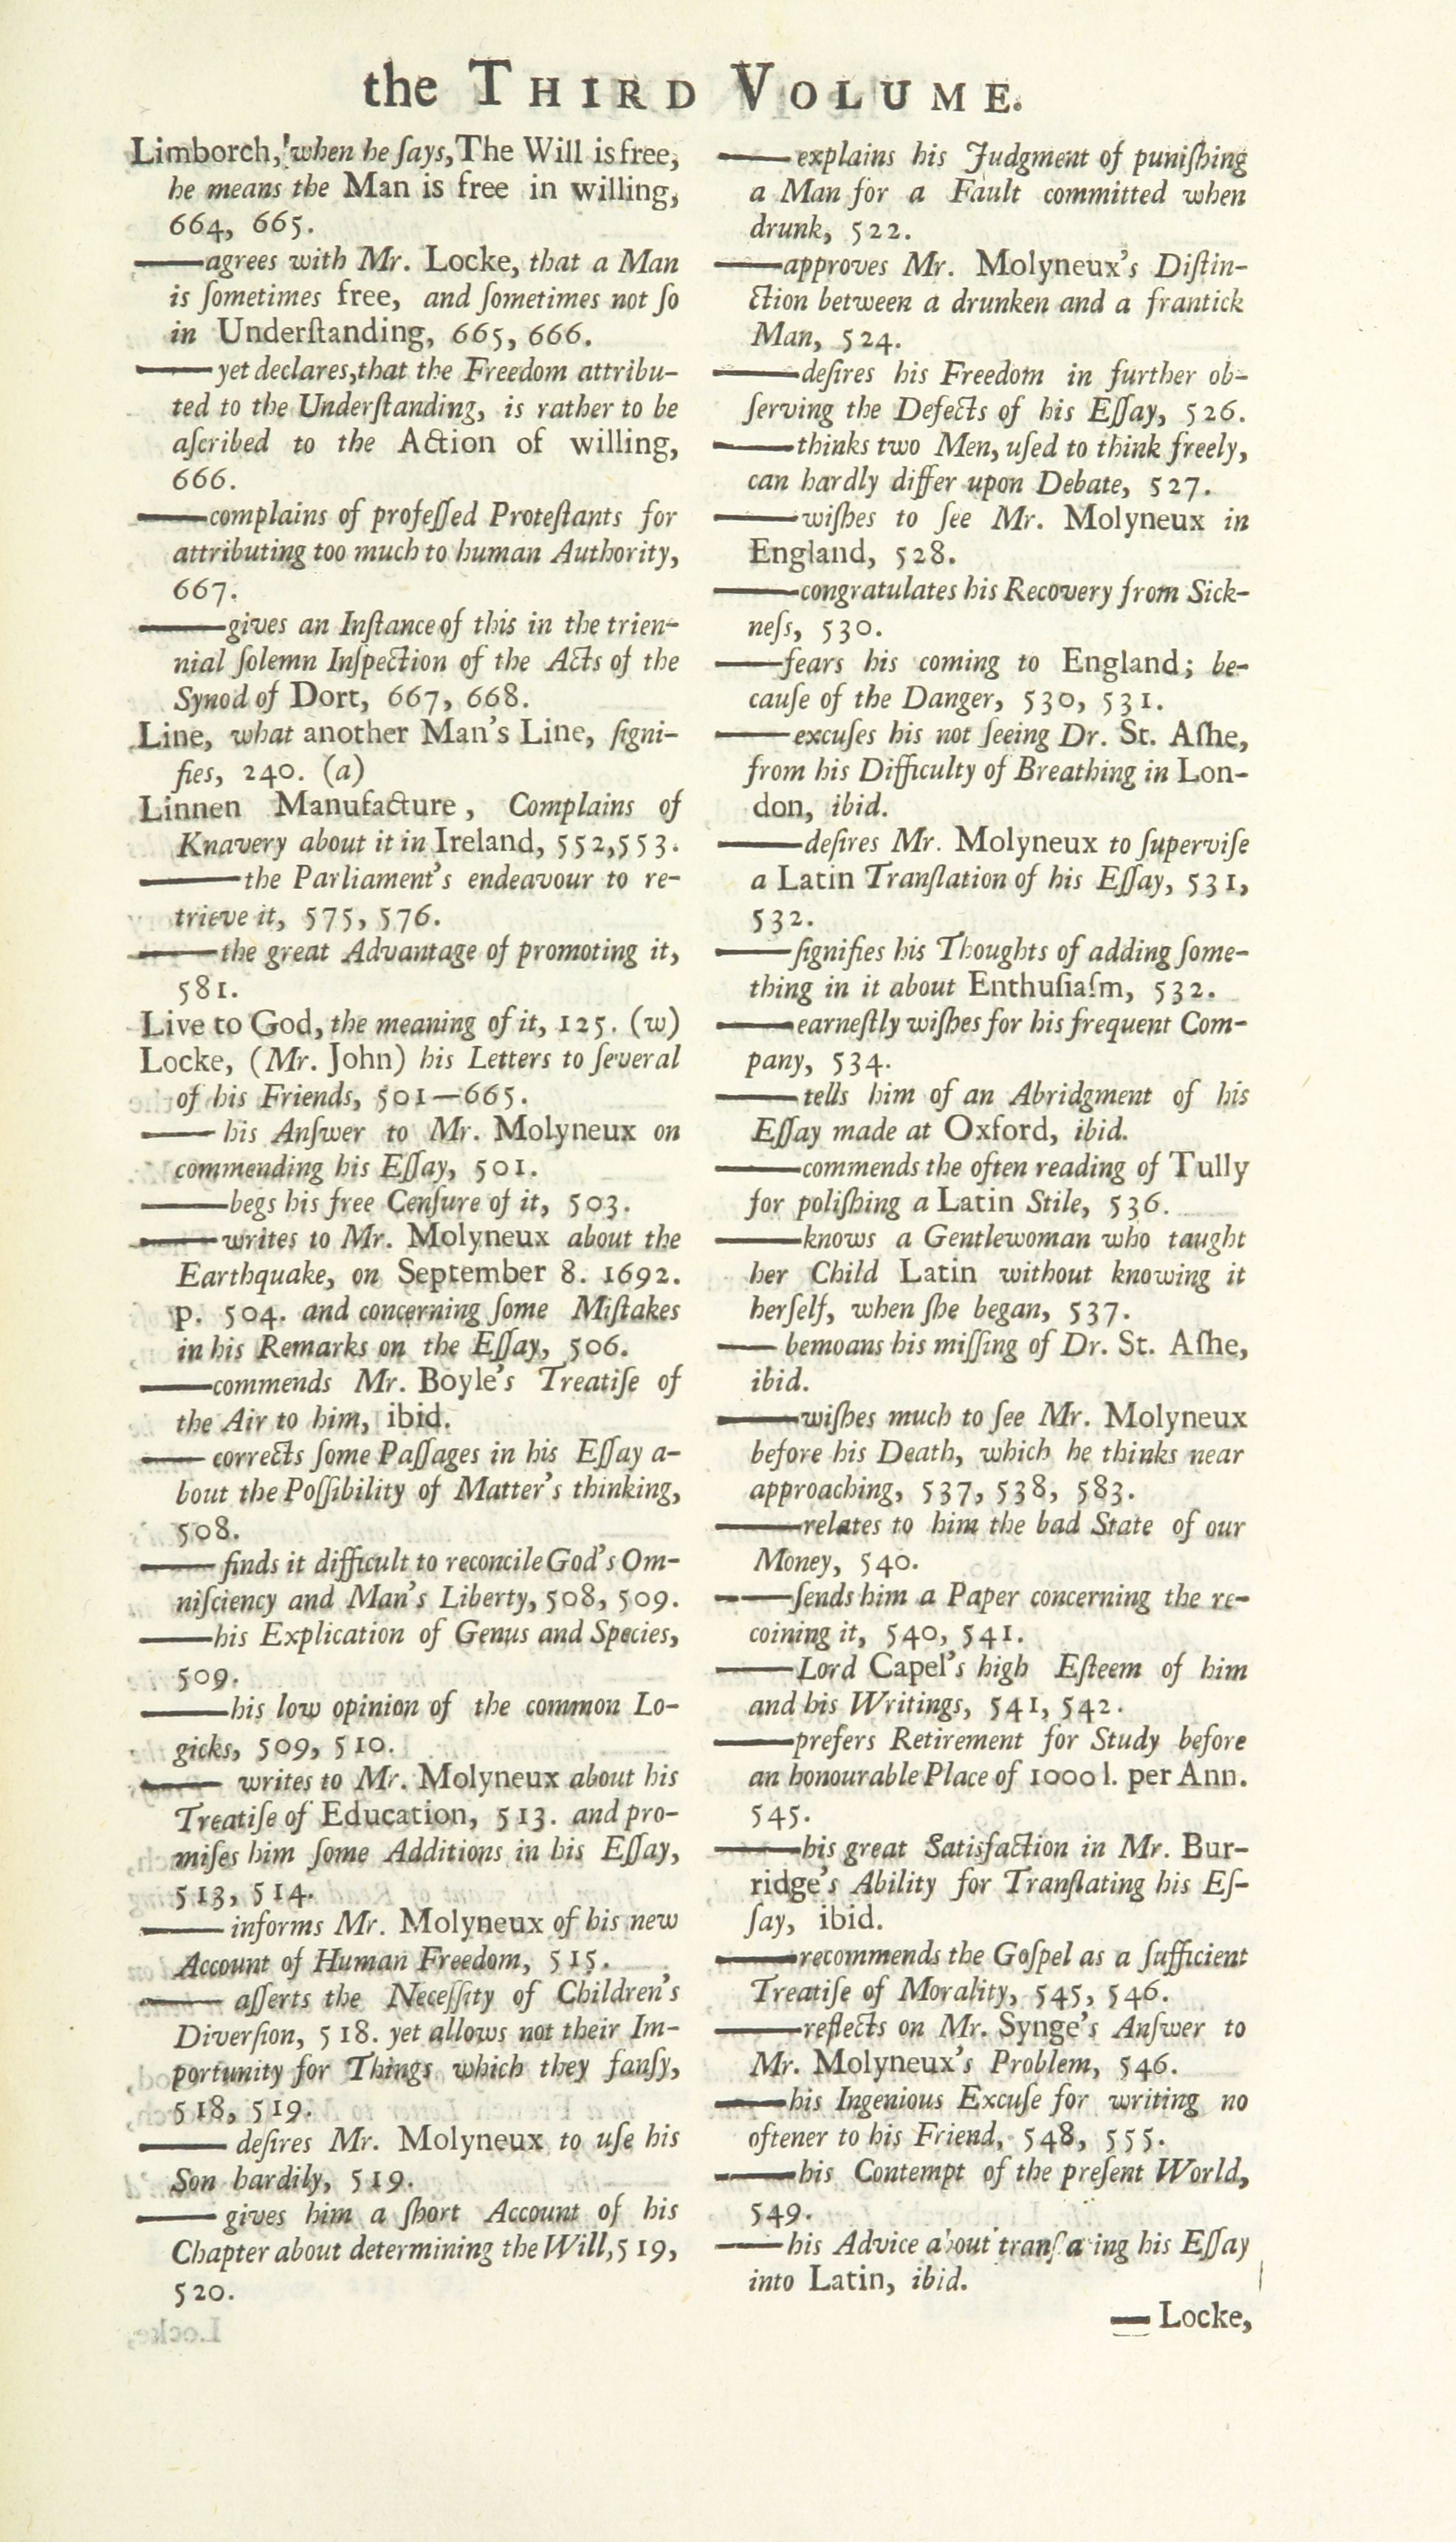 the THIRD VOLUME.
Limborch, when he ſays, The Will is free,
he means the Man is free in willing,
664, 665.
——agrees with Mr. Locke, that a Man
is ſometimes free, and ſometimes not ſo
in Underſtanding, 665, 666.
——yet declares, that the Freedom attribu-
ted to the Underſtanding, is rather to be
aſcribed to the Action of willing,
666.
——complains of profeſſed Proteſtants for
attributing too much to human Authority,
667.
——gives an Inſtance of this in the trien-
nial ſolemn Inſpection of the Acts of the
Synod of Dort, 667, 668.
Line, what another Man's Line, ſigni-
fies, 240. (a)
Linnen Manufacture, Complains of
Knavery about it in Ireland, 552,553.
——the Parliament's endeavour to re-
trieve it, 575, 576.
——the great Advantage of promoting it,
581.
Live to God, the meaning of it, 125. (w)
Locke, (Mr. John) his Letters to ſeveral
of his Friends, 501—665.
——his Anſwer to Mr. Molyneux on
commending his Eſſay, 501.
——begs his free Cenſure of it, 503.
——writes to Mr. Molyneux about the
Earthquake, on September 8. 1692.
p. 504. and concerning ſome Miſtakes
in his Remarks on the Eſſay, 506.
——commends Mr. Boyle's Treatiſe of
the Air to him, ibid.
——corrects ſome Paſſages in his Eſſay a-
bout the Poſſibility of Matter's thinking,
508.
——finds it difficult to reconcile God's Om-
niſciency and Man's Liberty, 508, 509.
——his Explication of Genus and Species,
509.
——his low opinion of the common Lo-
gicks, 509, 510.
——writes to Mr. Molyneux about his
Treatiſe of Education, 513. and pro-
miſes him ſome Additions in his Eſſay,
513, 514.
——informs Mr. Molyneux of his new
Account of Human Freedom, 515.
——aſſerts the Neceſſity of Children's
Diverſion, 518. yet allows not their Im-
portunity for Things which they fanſy,
518, 519.
——deſires Mr. Molyneux to uſe his
Son hardily, 519.
——gives him a ſhort Account of his
Chapter about determining the Will, 519,
520.
——explains his Judgment of puniſhing
a Man for a Fault committed when
drunk, 522.
——approves Mr. Molyneux's Diſtin-
ction between a drunken and a frantick
Man, 524.
——deſires his Freedom in further ob-
ſerving the Defects of his Eſſay, 526.
——thinks two Men, uſed to think freely,
can hardly differ upon Debate, 527.
——wiſhes to ſee Mr. Molyneux in
England, 528.
——congratulates his Recovery from Sick-
neſs, 530.
——fears his coming to England; be-
cauſe of the Danger, 530, 531.
——excuſes his not ſeeing Dr. St. Aſhe,
from his Difficulty of Breathing in Lon-
don, ibid.
——deſires Mr. Molyneux to ſuperviſe
a Latin Tranſlation of his Eſſay, 531,
532.
——ſignifies his Thoughts of adding ſome-
thing in it about Enthuſiaſm, 532.
——earneſtly wiſhes for his frequent Com-
pany, 534.
——tells him of an Abridgment of his
Eſſay made at Oxford, ibid.
——commends the often reading of Tully
for poliſhing a Latin Stile, 536.
——knows a Gentlewoman who taught
her Child Latin without knowing it
herſelf, when ſhe began, 537.
——bemoans his miſſing of Dr. St. Aſhe,
ibid.
——wiſhes much to ſee Mr. Molyneux
before his Death, which he thinks near
approaching, 537, 538, 583.
——relates to him the bad State of our
Money, 540.
——ſends him a Paper concerning the re-
coining it, 540, 541.
——Lord Capel's high Eſteem of him
and his Writings, 541, 542.
——prefers Retirement for Study before
an honourable Place of 1000 l. per Ann.
545.
——his great Satisfaction in Mr. Bur-
ridge's Ability for Tranſlating his Eſ-
ſay, ibid.
——recommends the Goſpel as a ſufficient
Treatiſe of Morality, 545, 546.
——reflects on Mr. Synge's Anſwer to
Mr. Molyneux's Problem, 546.
——his Ingenious Excuſe for writing no
oftener to his Friend, 548, 555.
——his Contempt of the preſent World,
549.
——his Advice about tranſlating his Eſſay
into Latin, ibid.
— Locke,